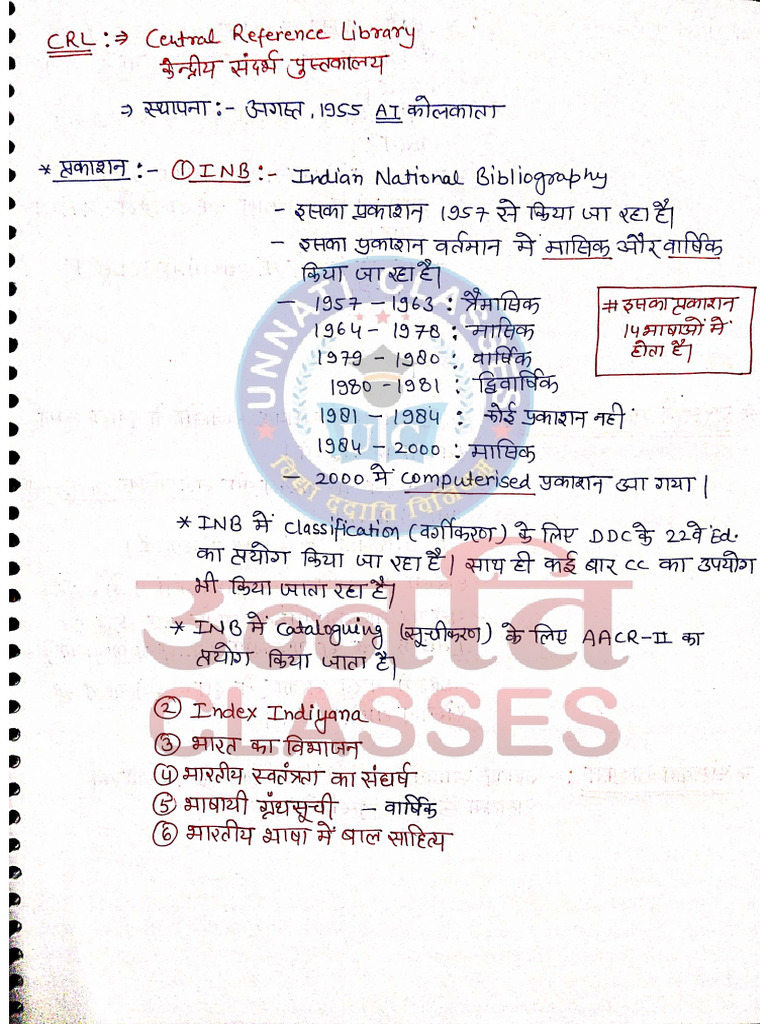 CRL :⇒ Central Reference Library
केन्द्रीय संदर्भ पुस्तकालय
⇒ स्थापना :- अगस्त, 1955 AT कोलकाता
* प्रकाशन :- ① INB :- Indian National Bibliography
- इसका प्रकाशन 1957 से किया जा रहा है।
- इसका प्रकाशन वर्तमान में मासिक और वार्षिक
किया जा रहा है।
- 1957 - 1963 : त्रैमासिक
1964 - 1978 : मासिक
1979 - 1980 : वार्षिक
1980 - 1981 : द्विवार्षिक
1981 - 1984 : कोई प्रकाशन नही
1984 - 2000 : मासिक
- 2000 में Computerised प्रकाशन आ गया।
# इसका प्रकाशन
14 भाषाओं में
होता है।
* INB में Classification (वर्गीकरण) के लिए DDC के 22वे Ed.
का प्रयोग किया जा रहा है। साथ ही कई बार CC का उपयोग
भी किया जाता रहा है।
* INB में Cataloguing (सूचीकरण) के लिए AACR-II का
प्रयोग किया जाता है।
② Index Indiyana
③ भारत का विभाजन
④ भारतीय स्वतंत्रता का संघर्ष
⑤ भाषायी ग्रंथसूची - वार्षिक
⑥ भारतीय भाषा में बाल साहित्य
UNNATI CLASSES
विद्या ददाति विनियम
उन्नति
CLASSES